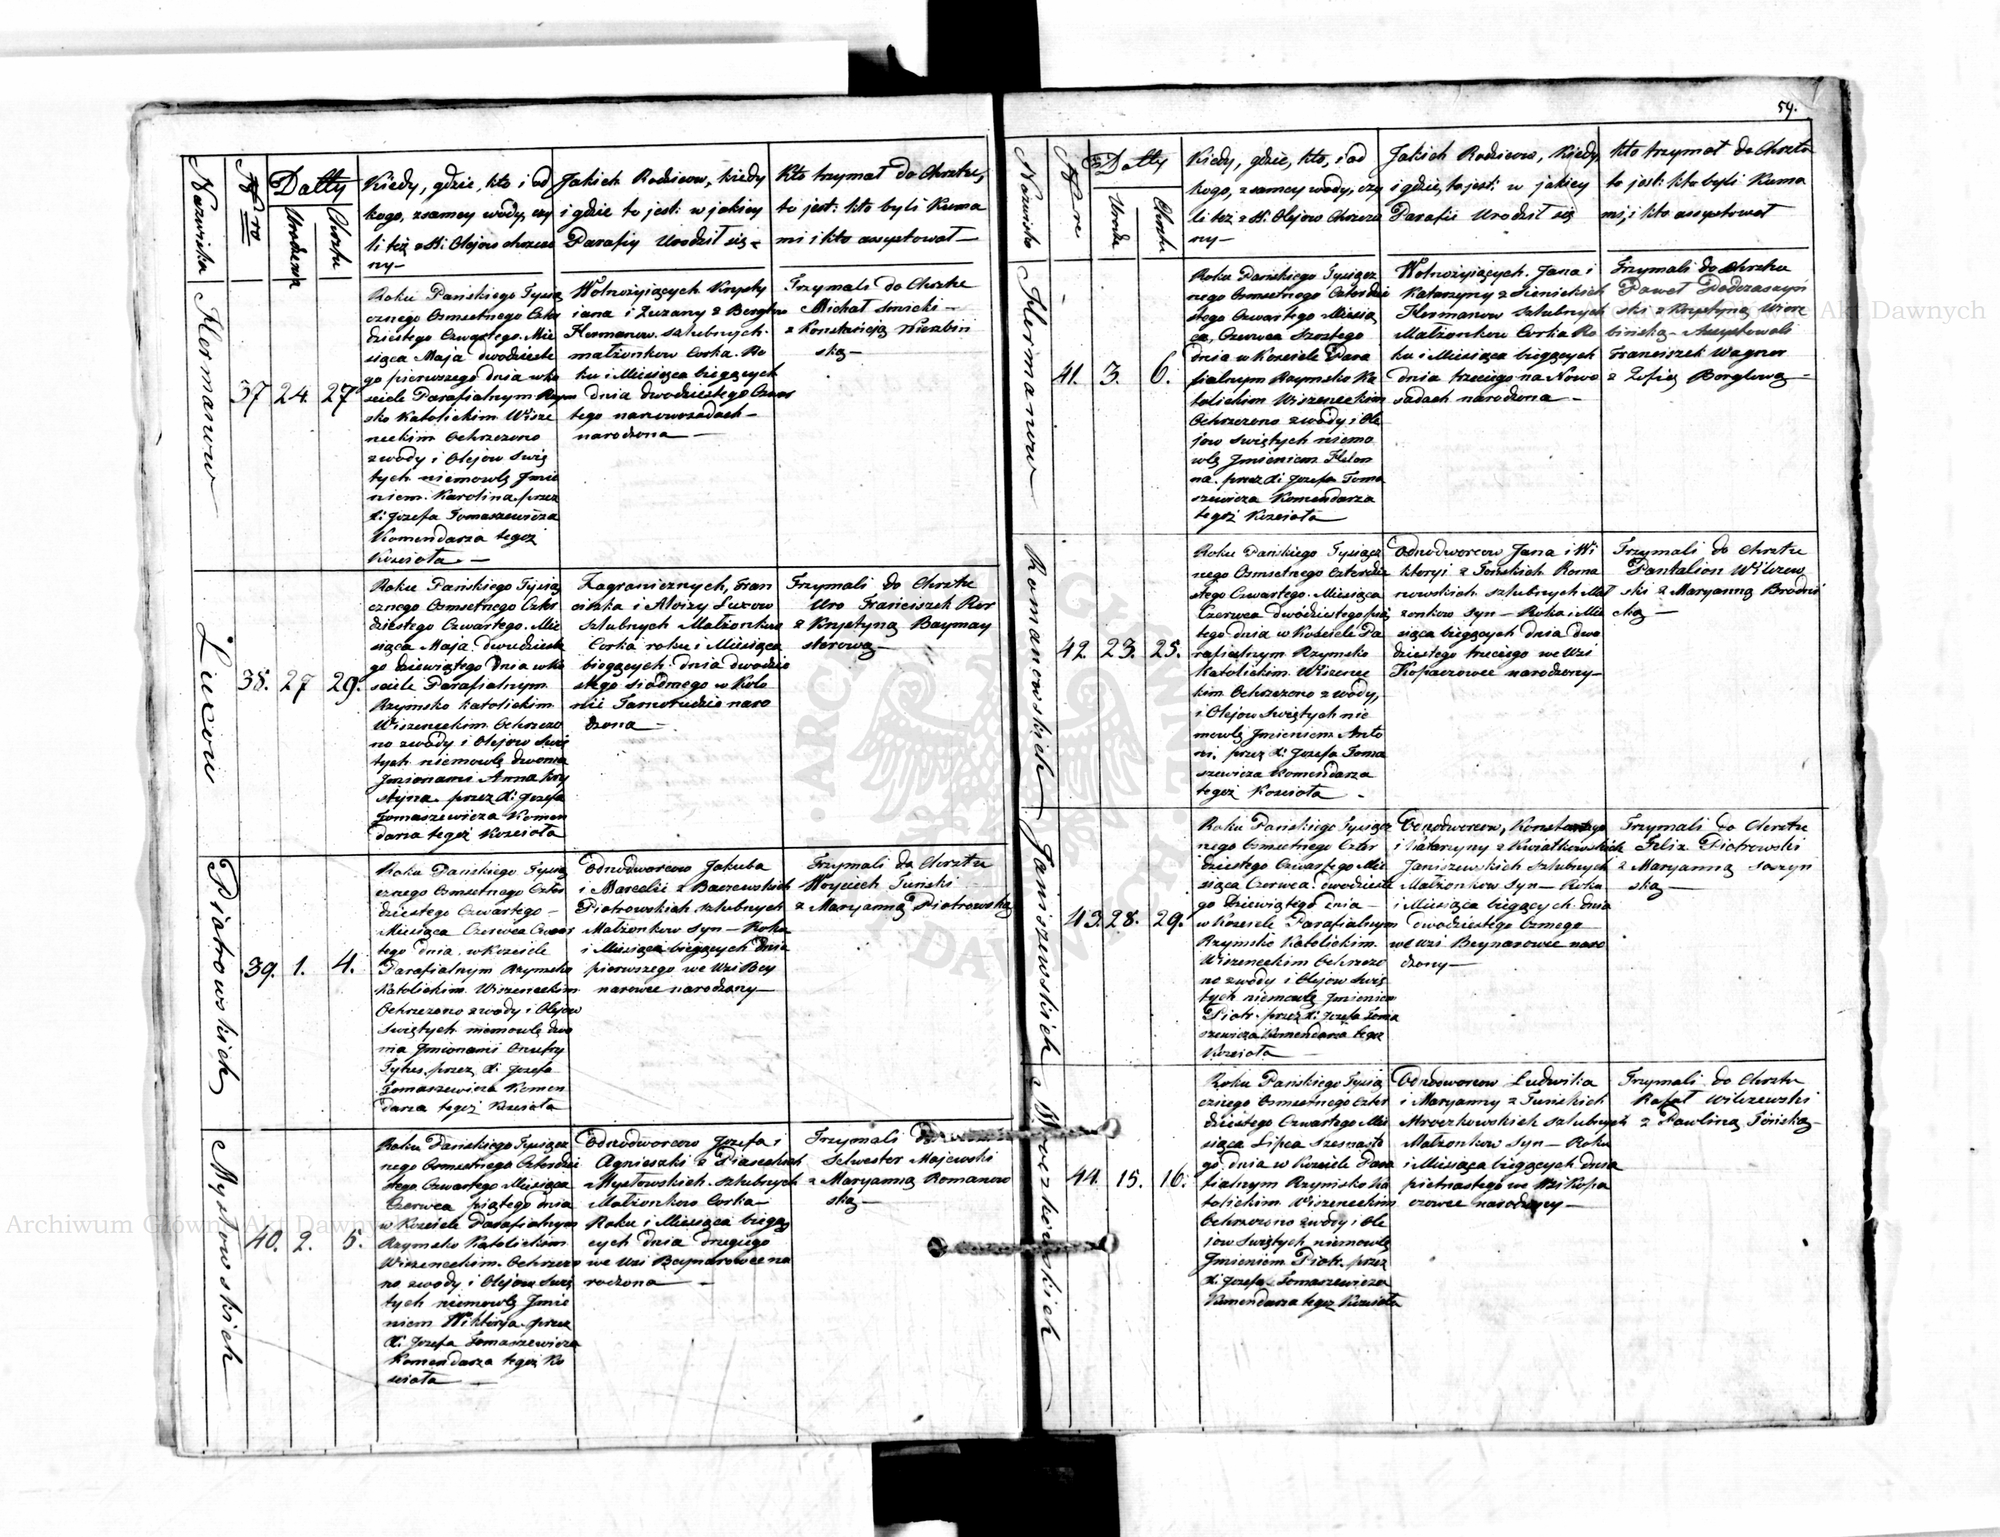 Nazwiska
Nro
Datty
Urodzenia
Chrztu
Kiedy, gdzie, kto i od
kogo, z samey wody, czy
li też z SS. Olejow chrzczo
ny —
Jakich Rodzicow, kiedy
i gdzie to jest: w jakiey
Parafiy Urodził się —
Kto trzymał do Chrztu,
to jest: kto byli Kuma
mi i kto assystował —
Hermanow
37
24.
27
Roku Pańskiego Tysią
cznego Osmsetnego Czter
dziestego Czwartego. Mie
siąca Maja dwodzieste
go pierwszego dnia w ko
sciele Parafialnym Rzym
sko Katolickim Wisze
neckim Ochrzczono
z wody i Olejow Swię
tych niemowlę Jmie
niem Karolina przez
X: Jozefa Tomaszewicza
Komendarza tegoż
Kościoła. —
Wolnożyiących Kryszty
iana i Zuzany z Bergow
Hermanow szlubnych
małżonkow Corka. Ro
ku i Miesiąca biegących
dnia dwodziestego Czwar
tego na nowosadach —
narodzona —
Trzymali do Chrztu
Michał Smicki —
z Konstancią Nieabin
ską —
Lucow
38.
27
29.
Roku Pańskiego Tysią
cznego Osmsetnego Czter
dziestego Czwartego. Mie
siąca Maja. dwudzieste
go dziewiątego dnia w ko
sciele Parafialnym
Rzymsko Katolickim
Wiszeneckim Ochrzczo
no z wody i Olejow Swię
tych niemowlę dwoma
Jmionami Anna Kry
styna przez X: Jozefa
Tomaszewicza Komen
darza tegoż Kościoła
Zagranicznych, Fran
ciszka i Aloizy Lucow
szlubnych Małżonkow
Corka roku i Miesiąca
biegących dnia dwodzie
stego siodmego w Kolo
nii naro
dzona —
Trzymali do Chrztu
Uro Franciszek Ror
z Krystyną Baymay
sterową —
Piotrowskich
39.
1.
4.
Roku Pańskiego Tysią
cznego Osmsetnego Czter
dziestego Czwartego —
Miesiąca Czerwca Czwar
tego dnia w Kosciele
Parafialnym Rzymsko
Katolickim Wiszeneckim
Ochrzczono z wody i Olejow
Swiętych niemowlę dwo
ma Jmionami Onufry
Tytus. przez X: Jozefa
Tomaszewicza Komen
darza tegoż Kościoła
Odnodworcow Jakuba
i Marcelii z Baczewskich
Piotrowskich szlubnych
Małżonkow Syn — Roku
i Miesiąca biegących dnia
pierwszego we Wsi Bey
narowce narodzony —
Trzymali do Chrztu
Woyciech Tuński
z Maryanną Piotrowską
Mysłowskich
40.
2.
5.
Roku Pańskiego Tysiącz
nego Osmsetnego Czterdzie
stego Czwartego Miesiąca
Czerwca piątego dnia
w Kosciele Parafialnym
Rzymsko Katolickim
Wiszeneckim Ochrzczo
no z wody i Olejow Swię
tych niemowlę Jmie
niem Wiktorya przez
X: Jozefa Tomaszewicza
Komendarza tegoż Ko
scioła —
Odnodworcow Jozefa i
Agnieszki z Piaseckich
Mysłowskich szlubnych
Małżonkow Corka
Roku i Miesiąca biegą
cych dnia drugiego
we Wsi Beynarowce na
rodzona —
Trzymali
Selwester Majewski
z Maryanną Romanow
ską —
54.
Nazwiska
Nro
Datty
Urodz
Chrztu
Kiedy, gdzie, kto, i od
kogo, z samey wody, czy
li też z SS. Olejow Chrzczo
ny —
Jakich Rodzicow, Kiedy
i gdzie, to jest: w jakiey
Parafii Urodził się
Kto trzymał do Chrztu
to jest: kto byli Kuma
mi, i kto assystował
Hermanow
41.
3.
6.
Roku Pańskiego Tysiącz
nego Osmsetnego Czterdzie
stego Czwartego Miesią
ca, Czerwca Szostego
dnia w Kosciele Para
fialnym Rzymsko Ka
tolickim Wiszeneckim
Ochrzczono z wody i Ole
jow Swiętych niemo
wlę Jmieniem Helen
na. przez X: Jozefa Toma
szewicza Komendarza
tegoż Kościoła —
Wolnożyiących. Jana i
Katarzyny z Sienickich
Hermanow Szlubnych
Małżonkow Corka Ro
ku i Miesiąca biegących
dnia trzeciego na Nowo
sadach narodzona —
Trzymali do Chrztu
Paweł Podczaszyń
ski z Krystyną Wierz
bińską — Assystowali
Franciszek Wagner
z Zofią Berglową —
Romanowskich
42.
23.
25.
Roku Pańskiego Tysiącz
nego Osmsetnego Czterdzie
stego Czwartego. Miesiąca
Czerwca dwódziestego pią
tego dnia w Kościele Pa
rafialnym Rzymsko
Katolickim Wiszenec
kim Ochrzczono z wody,
i Olejow Swiętych nie
mowlę Jmieniem Anto
ni. przez X: Jozefa Toma
szewicza Komendarza
tegoż Kościoła —
Odnodworcow Jana i Wi
ktoryi z Tońskich Roma
nowskich szlubnych Mał
żonkow Syn — Roku i Mie
siąca biegących dnia dwo
dziestego trzeciego we Wsi
Kopaczowce narodzony —
Trzymali do Chrztu
Pantalion Wilczew
ski z Maryanną Brodni
cką —
Janiszewskich
43.
28.
29.
Roku Pańskiego Tysiącz
nego Osmsetnego Czter
dziestego Czwartego Mie
siąca Czerwca. dwodzieste
go Dziewiątego dnia —
w Kosciele Parafialnym
Rzymsko Katolickim
Wiszeneckim Ochrzczo
no z wody i Olejow Swię
tych niemowlę Jmieniem
Piotr. przez X: Jozefa Toma
szewicza Komendarza tegoż
Kościoła —
Odnodworcow, Konstantego
i Katarzyny z Kwiatkowskich
Janiszewskich Szlubnych
Małżonkow Syn — Roku
i Miesiąca biegących dnia
dwodziestego Osmego
we Wsi Beynarowce naro
dzony —
Trzymali do Chrztu
Felix Piotrowski
z Maryanną Soszyn
ską —
Mroczkowskich
44.
15.
16.
Roku Pańskiego Tysią
cznego Osmsetnego Czter
dziestego Czwartego Mie
siąca Lipca Szesnaste
go dnia w Kosciele Para
fialnym Rzymsko Ka
tolickim Wiszeneckim
Ochrzczono z wody i Ole
jow Swiętych niemowlę
Jmieniem Piotr. przez
X: Jozefa Tomaszewicza
Komendarza tegoż Kościoła
Odnodworcow Ludwika
i Maryanny z Tuńskich
Mroczkowskich szlubnych
Małżonkow Syn — Roku
i Miesiąca biegących dnia
pietnastego we Wsi Kopa
czowce narodzony —
Trzymali do Chrztu
Rafał Wilczewski
z Pawliną Tońską —
Archiwum Główne Akt Dawnych